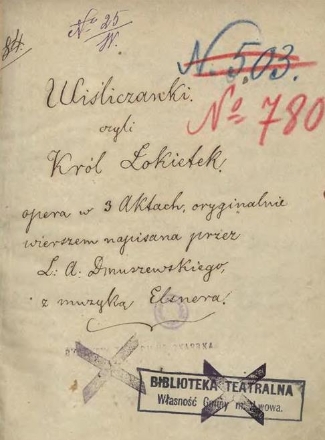 84.
No 25
IV.
N. 503.
No 780
Wiśliczanki.
czyli
Król Łokietek.
opera w 3 Aktach, oryginalnie
wierszem napisana przez
L: A: Dmuszewskiego,
z muzyką Elsnera.
BIBLIOTEKA TEATRALNA
Własność Gminy m. Lwowa.